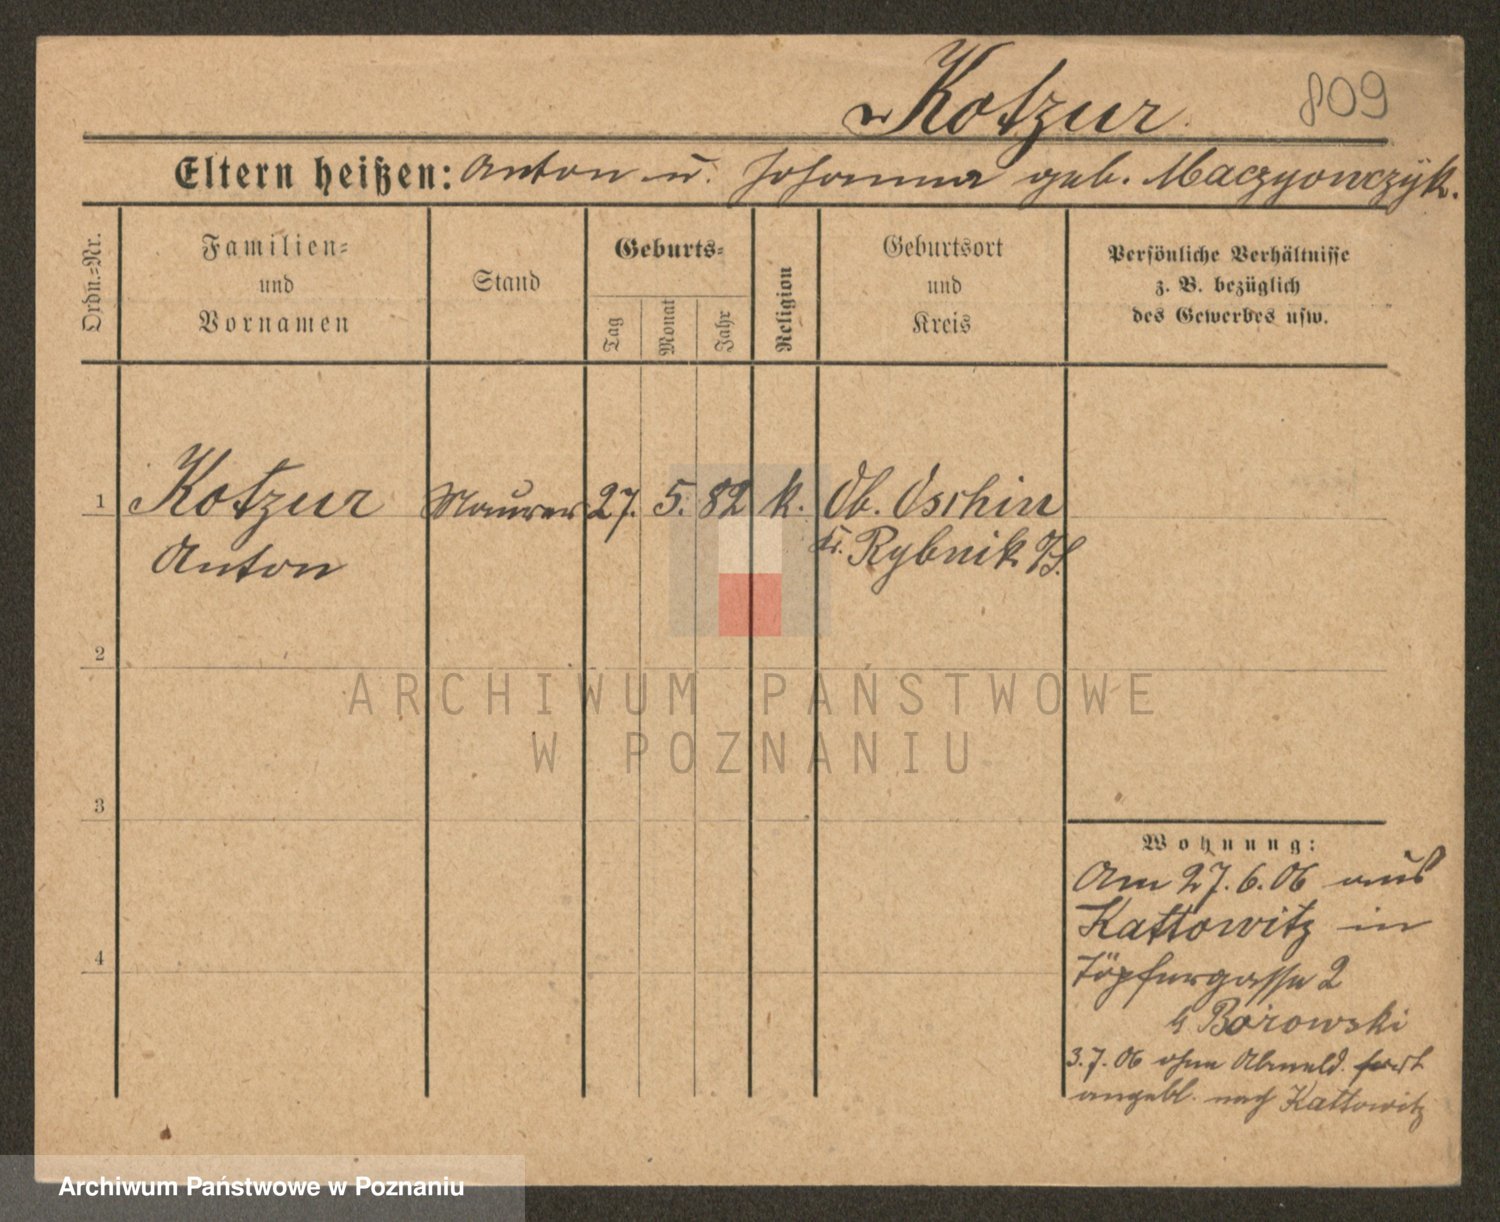 Kotzur 809
Eltern heißen: Anton u. Johanna geb. Maczyonczyk.
Ordn.=Nr.
Familien=
und
Vornamen
Stand
Geburts=
Tag
Monat
Jahr
Religion
Geburtsort
und
Kreis
Persönliche Verhältnisse
z. B. bezüglich
des Gewerbes usw.
1 Kotzur Maurer 27. 5. 82 k. Ob. Oschin
Anton Kr. Rybnik O/S.
2
3
4
Wohnung:
Am 27.6.06 aus
Kattowitz in
Töpfergasse 2
b Borowski
3.7.06 ohne Abmeld. fort
angebl. nach Kattowitz
ARCHIWUM PAŃSTWOWE
W POZNANIU
Archiwum Państwowe w Poznaniu